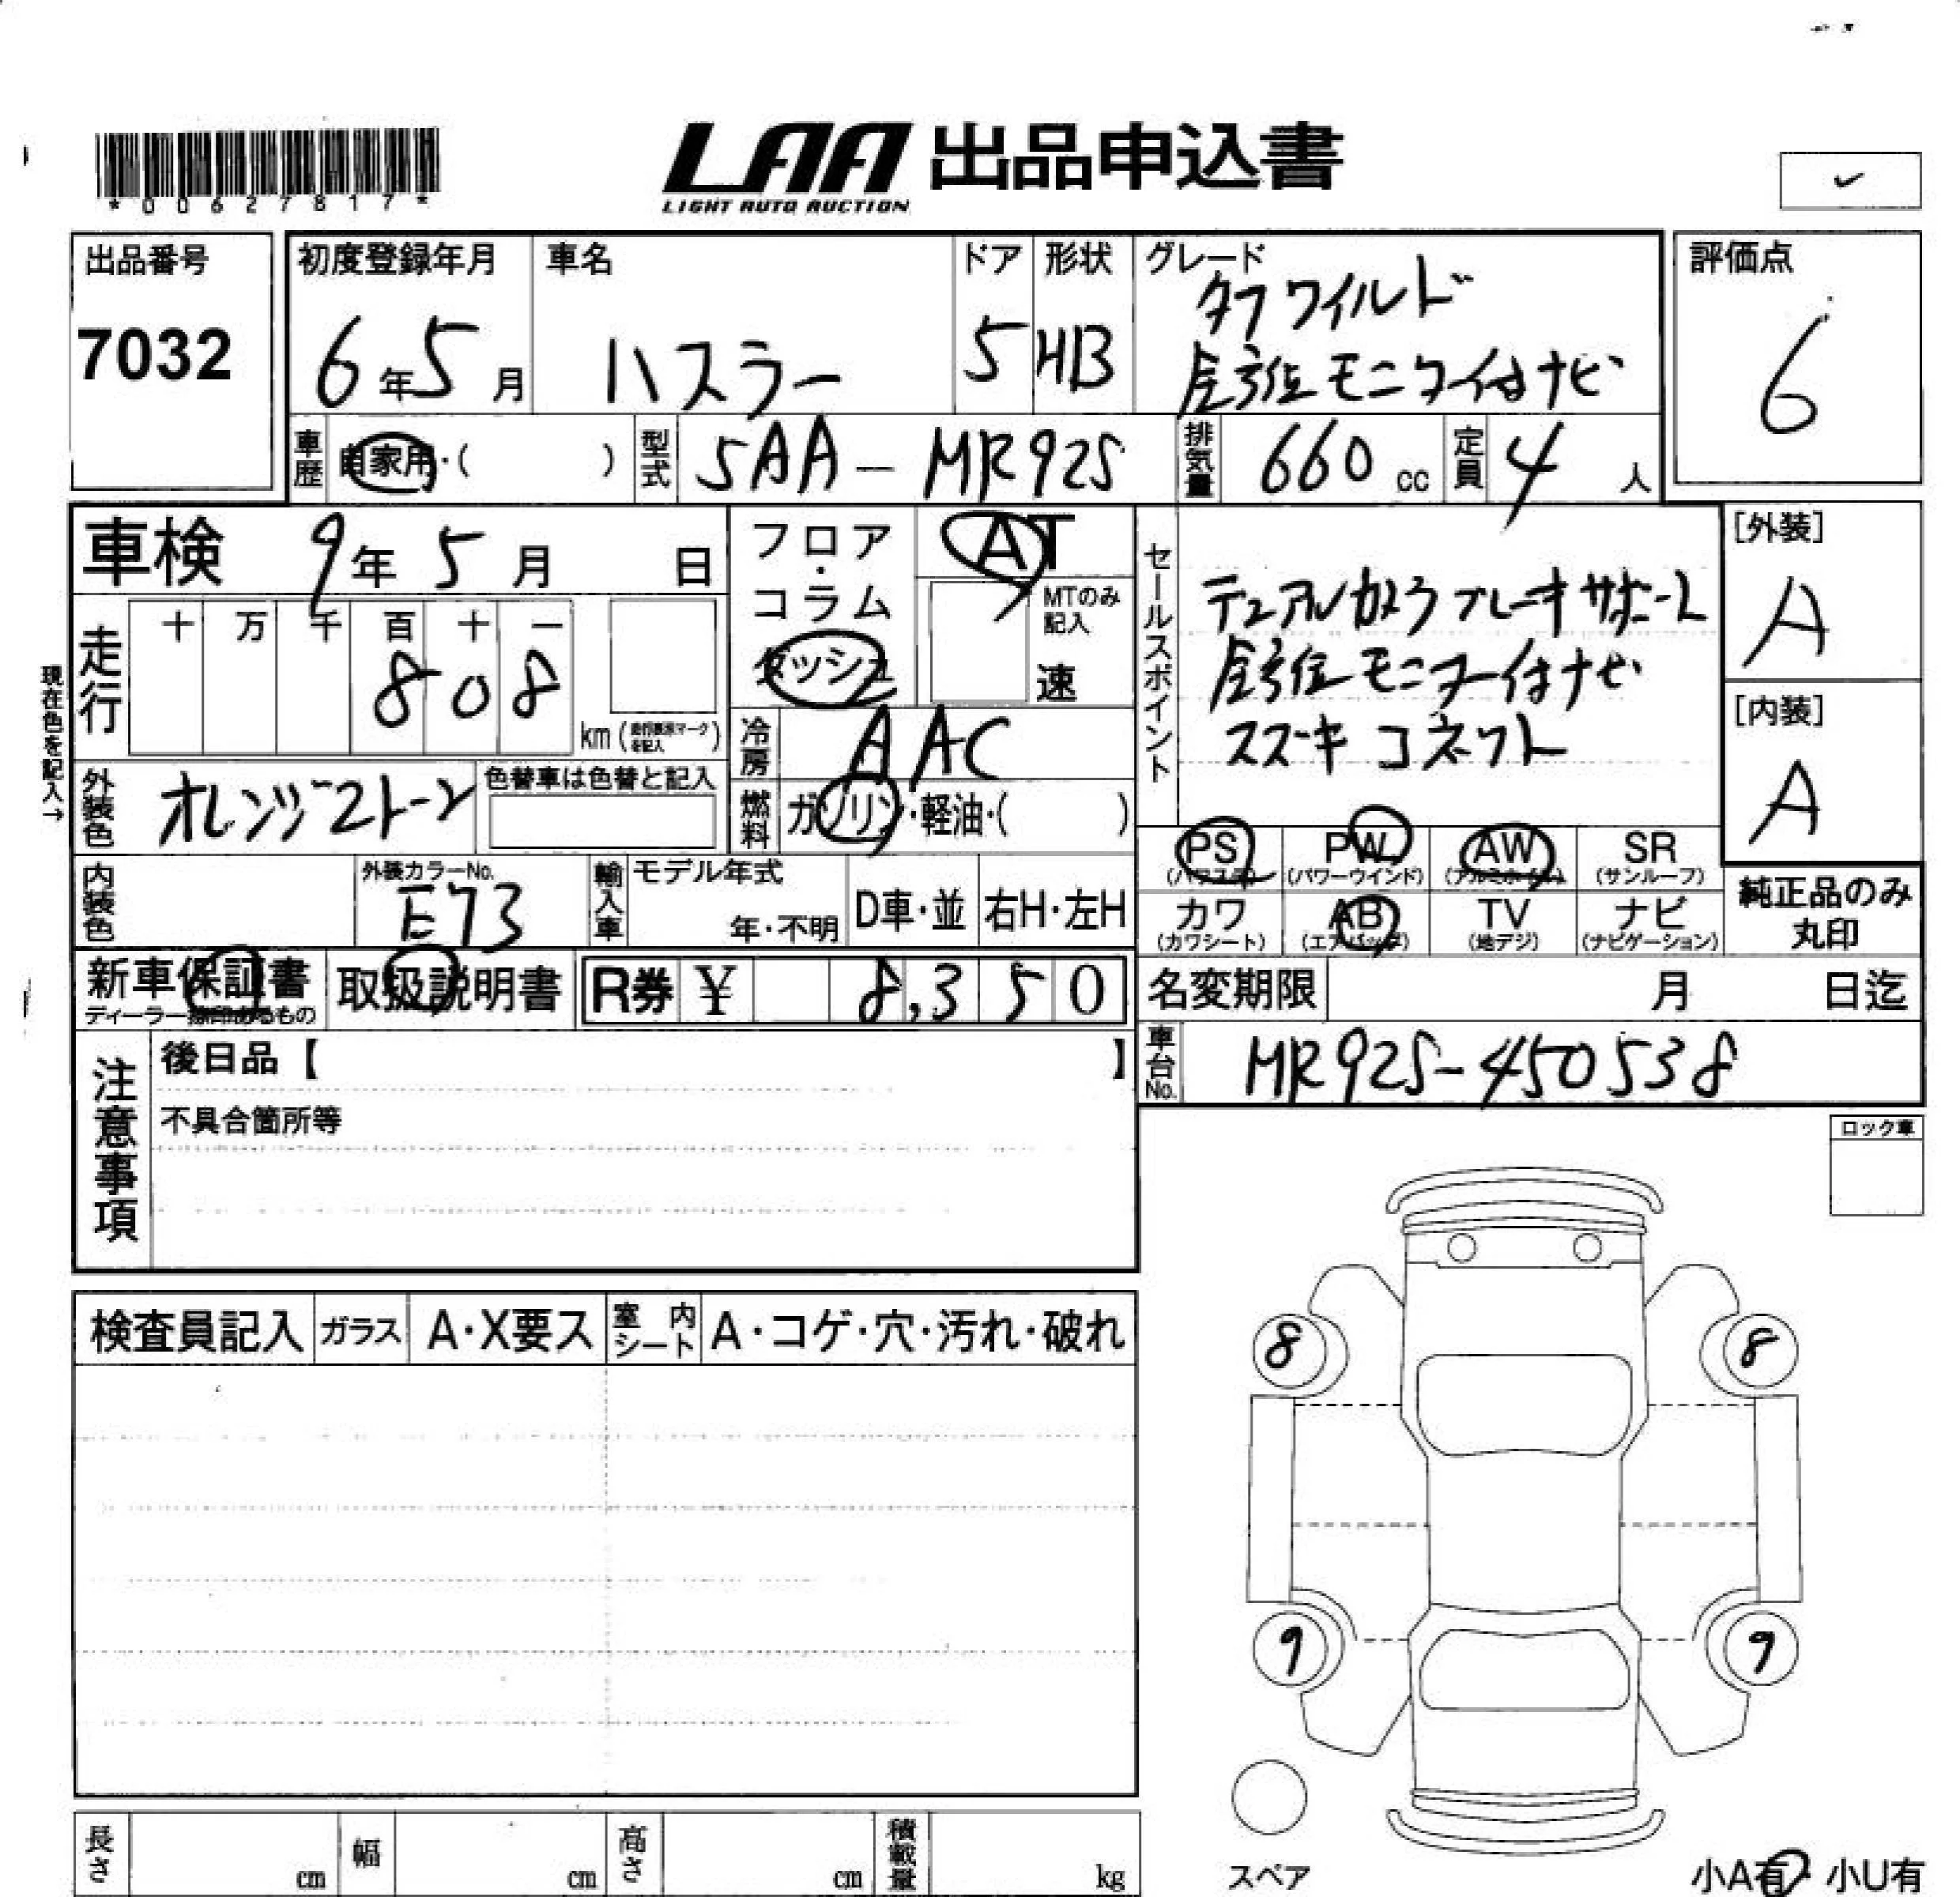 *00627817*
LAA 出品申込書
LIGHT AUTO AUCTION
✓
出品番号
7032
初度登録年月
6年5月
車名
ハスラー
ドア
5
形状
HB
グレード
タフワイルド
全方位モニター付ナビ
評価点
6
車歴
自家用・( )
型式
5AA-MR92S
排気量
660 cc
定員
4人
車検 9年5月 日
フロア・コラム
ダッシュ
AT
MTのみ記入
速
セールスポイント
デュアルカメラブレーキサポート
全方位モニター付ナビ
スズキコネクト
[外装]
A
[内装]
A
現在色を記入→
走行
十 万 千 百 十 一
808
km (走行表示マークを記入)
冷房
AAC
燃料
ガソリン・軽油・( )
外装色
オレンジ2トーン
色替車は色替と記入
内装色
外装カラーNo.
E73
輸入車
モデル年式
年・不明
D車・並
右H・左H
PS (パワステ)
PW (パワーウインド)
AW (アルミホイル)
SR (サンルーフ)
カワ (カワシート)
AB (エアバッグ)
TV (地デジ)
ナビ (ナビゲーション)
純正品のみ
丸印
新車保証書
ディーラー捺印あるもの
取扱説明書
R券 ¥ 8,350
名変期限 月 日迄
車台No.
MR92S-450538
注意事項
後日品【 】
不具合箇所等
ロック車
検査員記入
ガラス
A・X要ス
室内シート
A・コゲ・穴・汚れ・破れ
8
8
9
9
スペア
長さ cm
幅 cm
高さ cm
積載量 kg
小A有・小U有